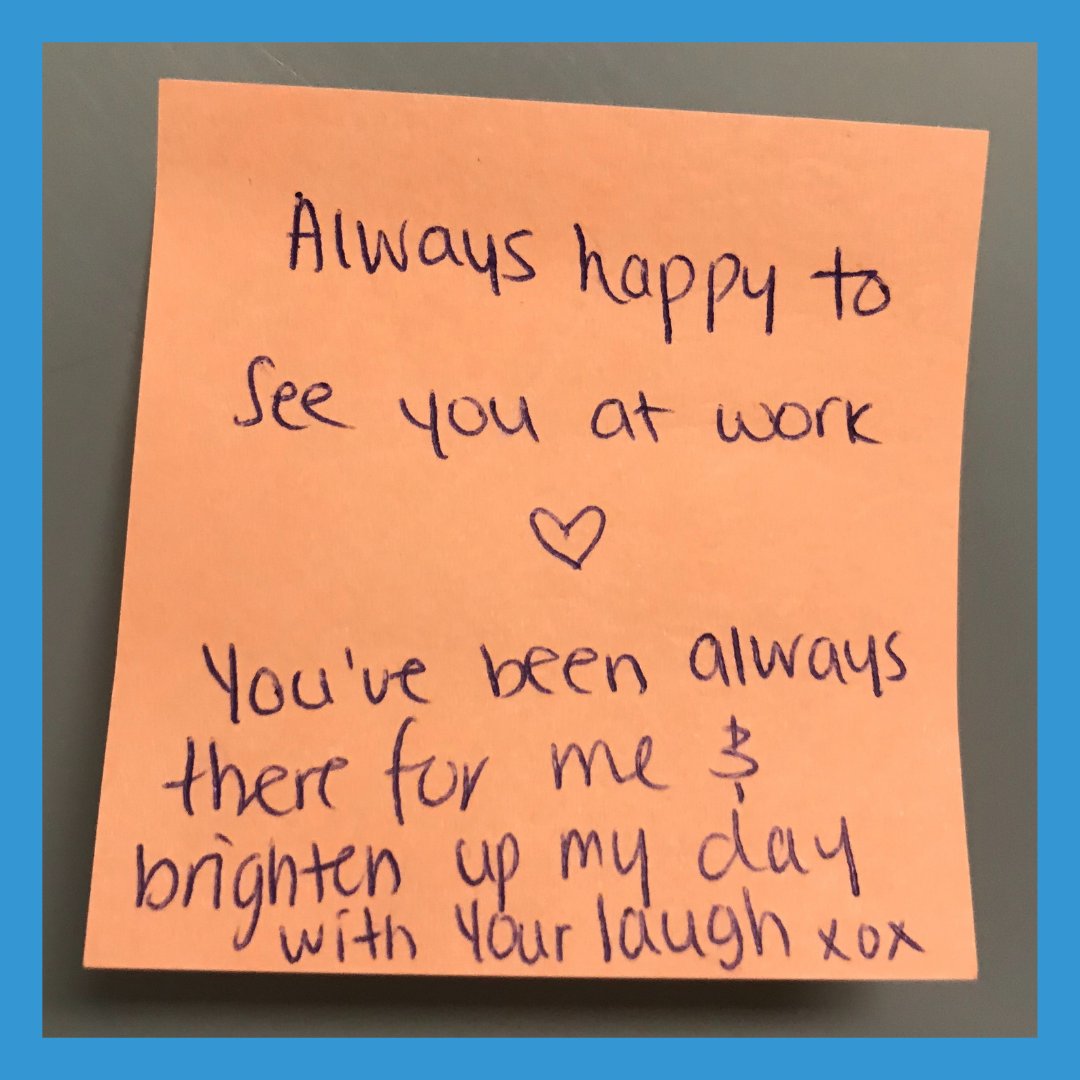 Always happy to
See you at work
♡
You've been always
there for me &
brighten up my day
with your laugh xox